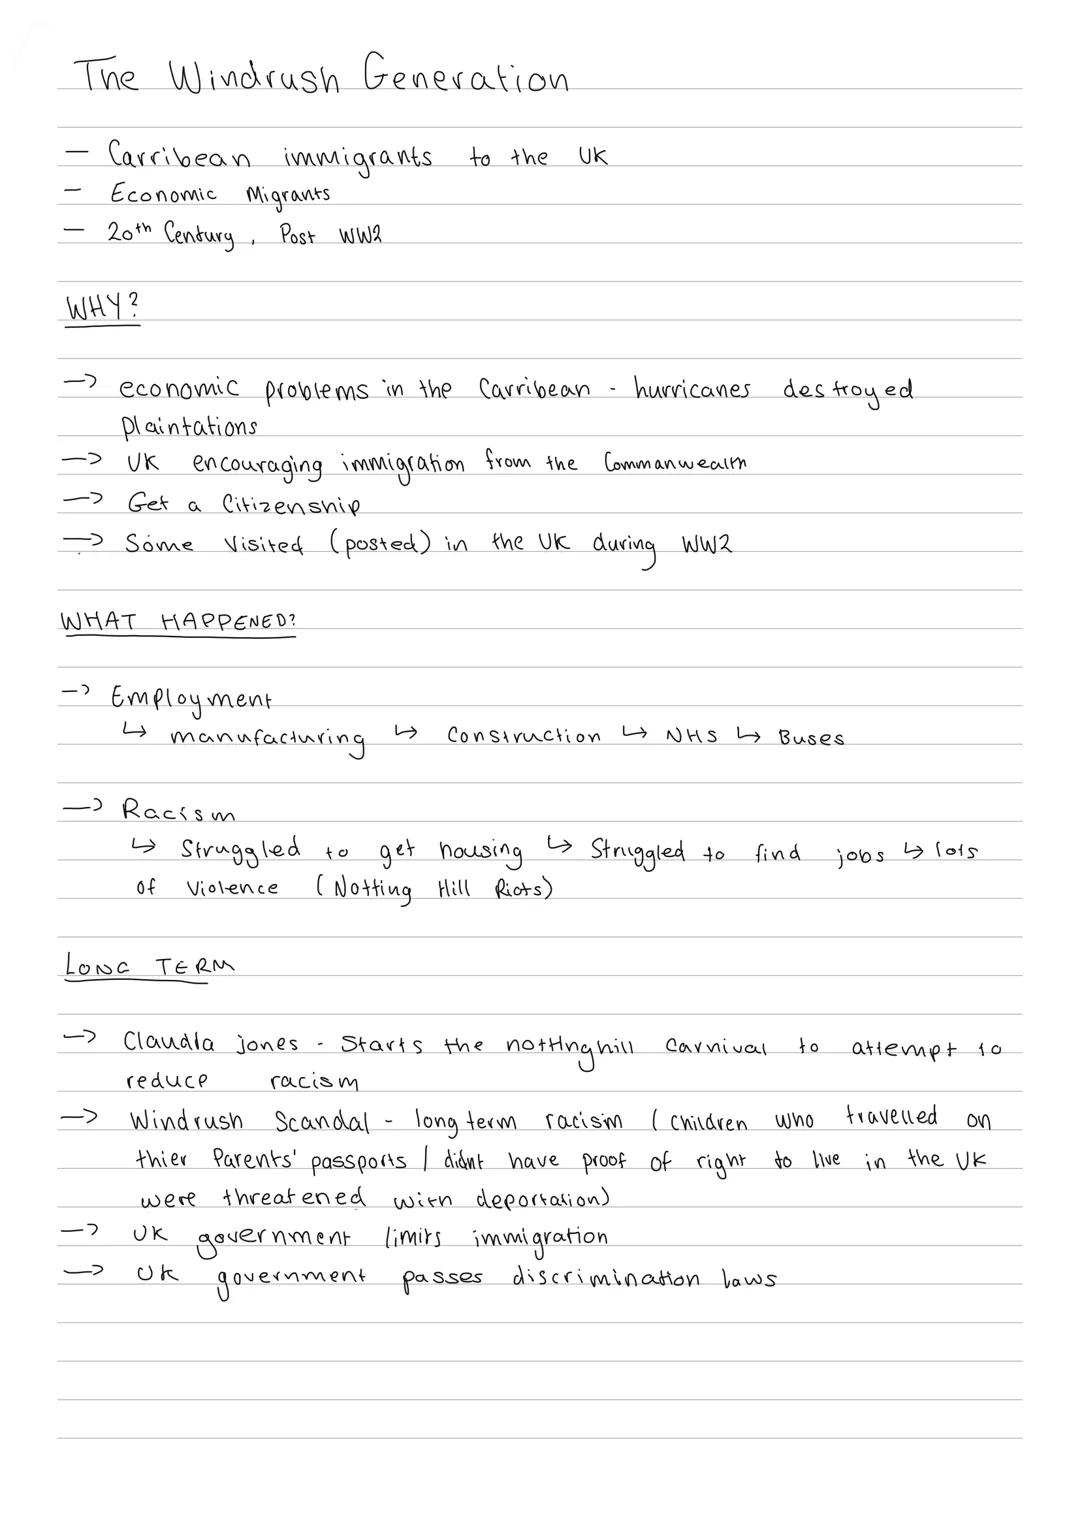 The Windrush Generation
- Carribean immigrants to the UK
- Economic Migrants
- 20th Century, Post WW2
WHY?
-> economic problems in the Carribean - hurricanes destroyed
plaintations
-> UK encouraging immigration from the Commanwealth
-> Get a Citizenship
-> Some Visited (posted) in the UK during WW2
WHAT HAPPENED?
-> Employment
↳ manufacturing ↳ Construction ↳ NHS ↳ Buses
-> Racism
↳ Struggled to get housing ↳ Struggled to find jobs ↳ lots
of Violence (Notting Hill Riots)
LONG TERM
-> Claudia jones - Starts the nottinghill Carnival to attempt to
reduce racism
-> Windrush Scandal - long term racism (Children who travelled on
thier Parents' passports / didnt have proof of right to live in the UK
were threatened with deportation)
-> UK government limits immigration
-> UK government passes discrimination laws